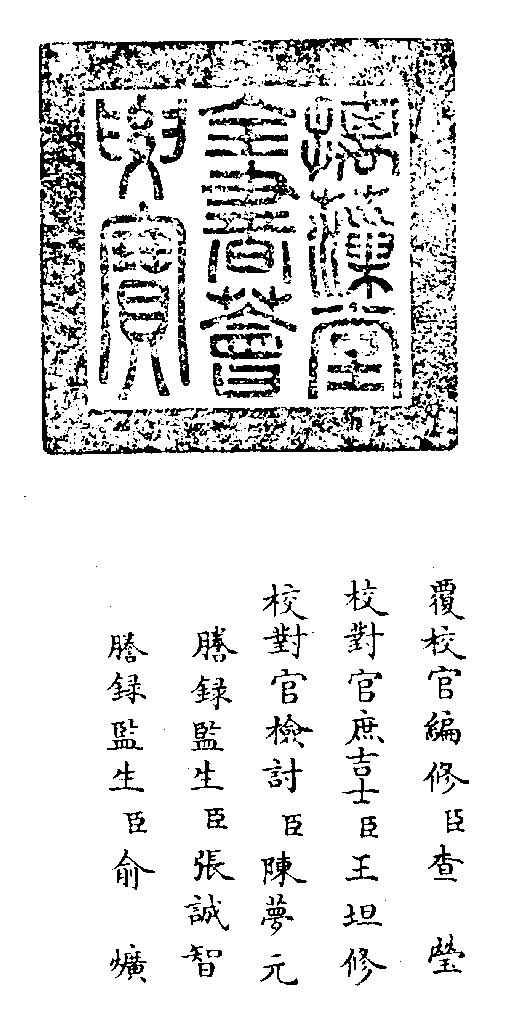 摛藻堂
全書薈
要寶
覆校官編修臣查瑩
校對官庶吉士臣王坦修
校對官檢討臣陳夢元
謄録監生臣張誠智
謄録監生臣俞爌